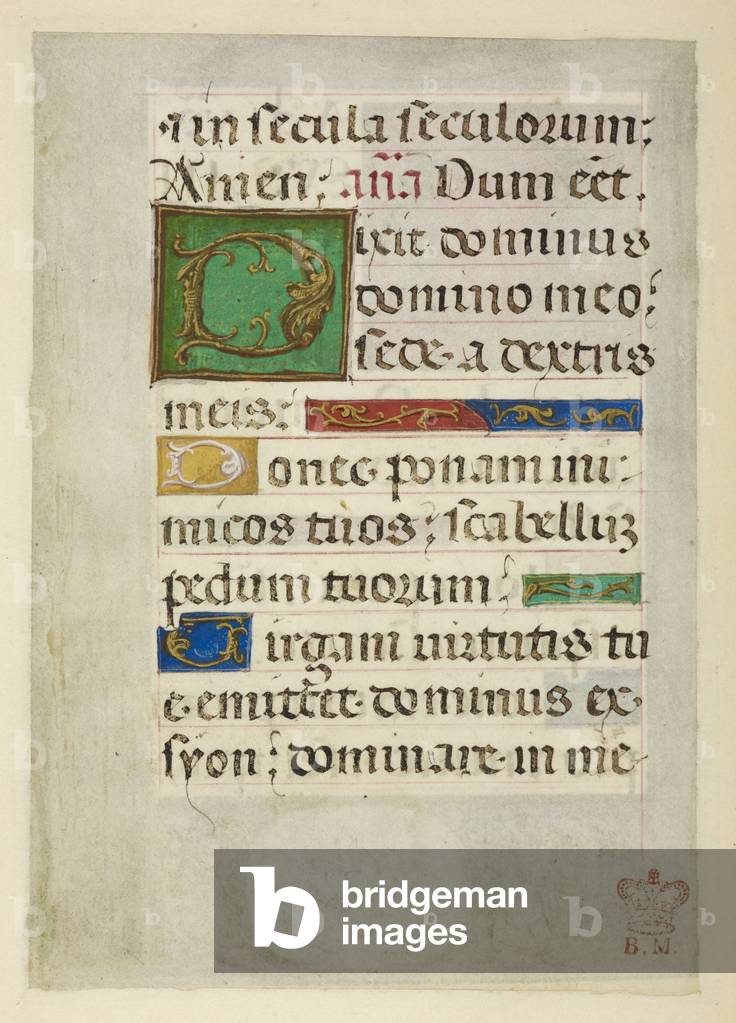 ⁊ in secula seculorum:
Amen: an̄a Dum eēt.
Dixit dominus
domino meo:
sede a dextris
meis:
Donec ponam ini:
micos tuos: scabelluꝫ
pedum tuorum:
Virgam virtutis tu
e emittet dominus ex
syon: dominare in me
bridgeman
images
B.M.